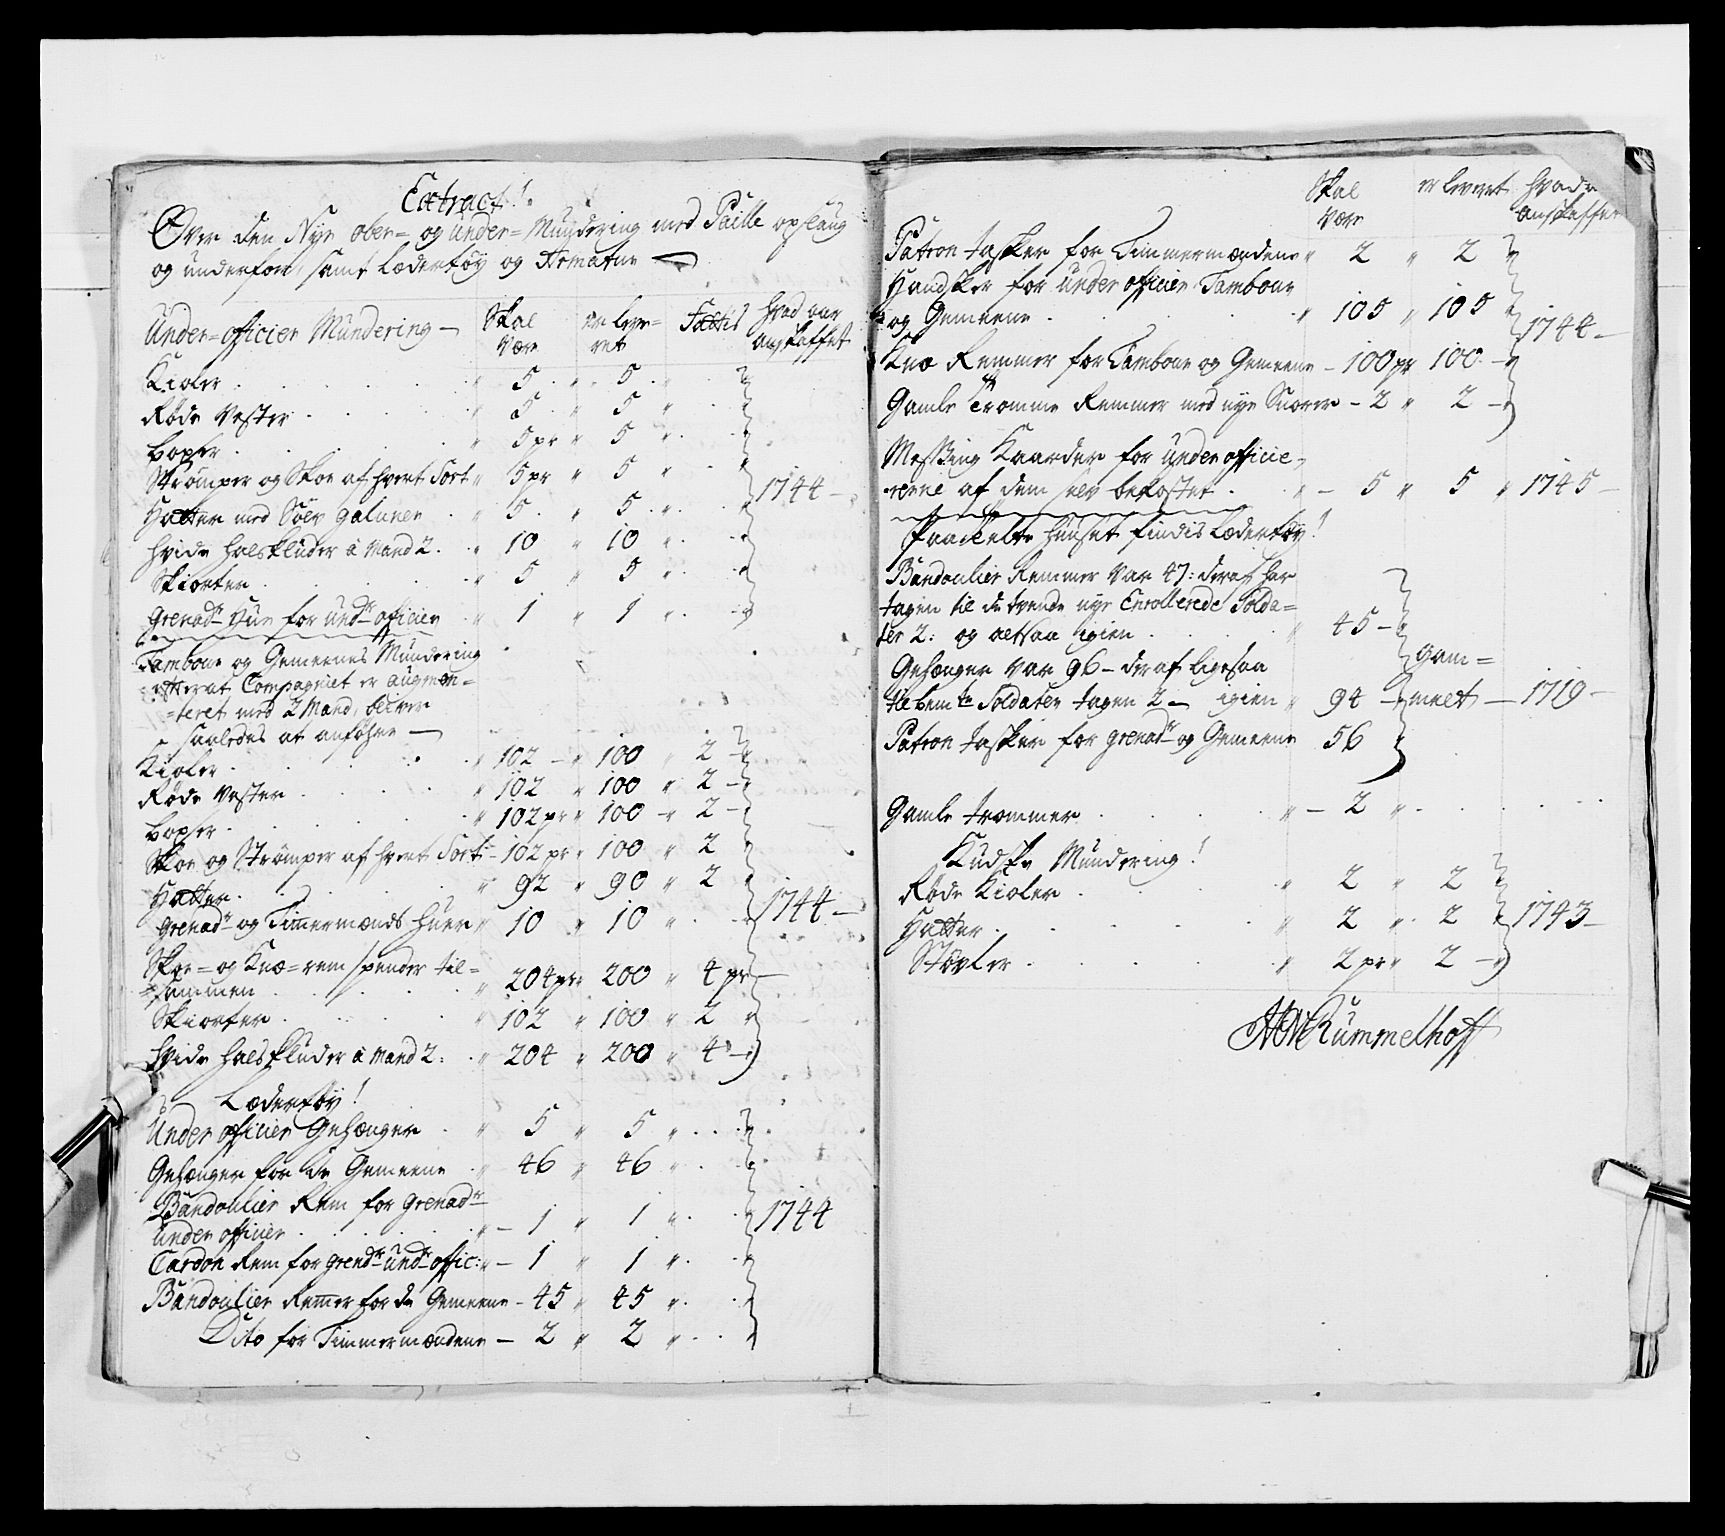 Extract!
Over den Nye ober= og Under= Mundering med Paille opslaug
og underfoer, samt Lædertøy og Armatur
Under=officier Mundering — Skal være er leve=ret Fattis hvad aar anskaffet
Kioler . . . 5 . 5 .
Røde Vester . . . 5 . 5
Boxer . . . 5 pr 5
Strømper og Skoe af hvert Sort 5 pr 5
Hatter med Sølv galuner . 5 . 5 . 1744 —
hvide halsklüder â Mand 2 . 10 10
Skiorter . . . 5 5
grenadr Hue for undr officier 1 1
Tambour og Gemeenes Mündering
efter at Compagniet er augmen=
=teret med 2 Mand, bliver
saaledes at anføhre —
Kioler . . . 102 — 100 2 —
Røde Vester . . . 102 100 2 —
Boxer . . . 102 pr 100 — 2 —
Skoe og Strømper af hvert Sort — 102 pr 100 2
Hatter . . . 92 90 2
grenadr og Timmermænds Huer 10 10 . 1744 —
Skoe= og Knæ=rem spender til=
=sammen . . . 204 pr 200 4 pr —
Skiorter . . . 102 100 2
hvide halsklüder â Mand 2 : 204 200 4 —
Lædertøy!
Under officier Gehænger . 5 5
Gehænger for de Gemeene . 46 46
Bandoulier Rem for grenadr
under officier . . . — 1 1 . 1744
Cardon Rem for grendr undr offic: — 1 1
Bandoulier Remer for de Gemeene — 45 45
Dito for Timmermændene — 2 2
Skal være er leveret hvad aar anskaffet
Patron tasker for Timmermændene 2 2
Handsker for under officier Tambour
og Gemeene . . . 105 105 1744 —
Knæ Remmer for Tambour og Gemeene — 100 pr 100 —
Gamle Tromme Remmer med nye Snorer — 2 2 —
Messing Kaarder for under officie=
rerne af dem selv bekostet . — 5 5 1745 —
Paa Telte Huuset findis Lædertøy!
Bandoulier Remmer var 47: deraf har
tagen til de tvende nye Enrollerede Solda=
ter 2: og altsaa igien . . . 45 —
Gehænger var 96 — deraf ligesaa gam=
til bemte Soldater tagen 2 — igien 94 — melt — 1719 —
Patron tasker for grenadr og Gemeene 56
Gamle trommer . . . — 2
Kudske Mundering!
Røde Kioler . . . 2 2
Hatter . . . 2 2 1743 —
Støvler . . . 2 pr 2 —
Rümmelhoff